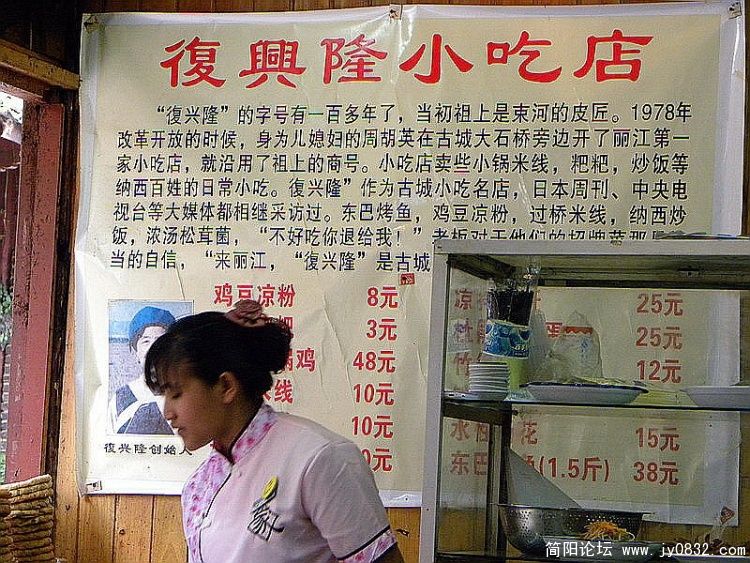 復興隆小吃店
“復兴隆”的字号有一百多年了，当初祖上是束河的皮匠。1978年
改革开放的时候，身为儿媳妇的周胡英在古城大石桥旁边开了丽江第一
家小吃店，就沿用了祖上的商号。小吃店卖些小锅米线，粑粑，炒饭等
纳西百姓的日常小吃。復兴隆”作为古城小吃名店，日本周刊、中央电
视台等大媒体都相继采访过。东巴烤鱼，鸡豆凉粉，过桥米线，纳西炒
饭，浓汤松茸菌，“不好吃你退给我！”老板对于他们的招牌菜那
当的自信，“来丽江，“復兴隆”是古城
鸡豆凉粉 8元
粑 3元
锅鸡 48元
米线 10元
10元
0元
凉 25元
25元
竹 12元
水 花 15元
东巴 鱼(1.5斤) 38元
復兴隆创始人
简阳论坛 www.jy0832.com